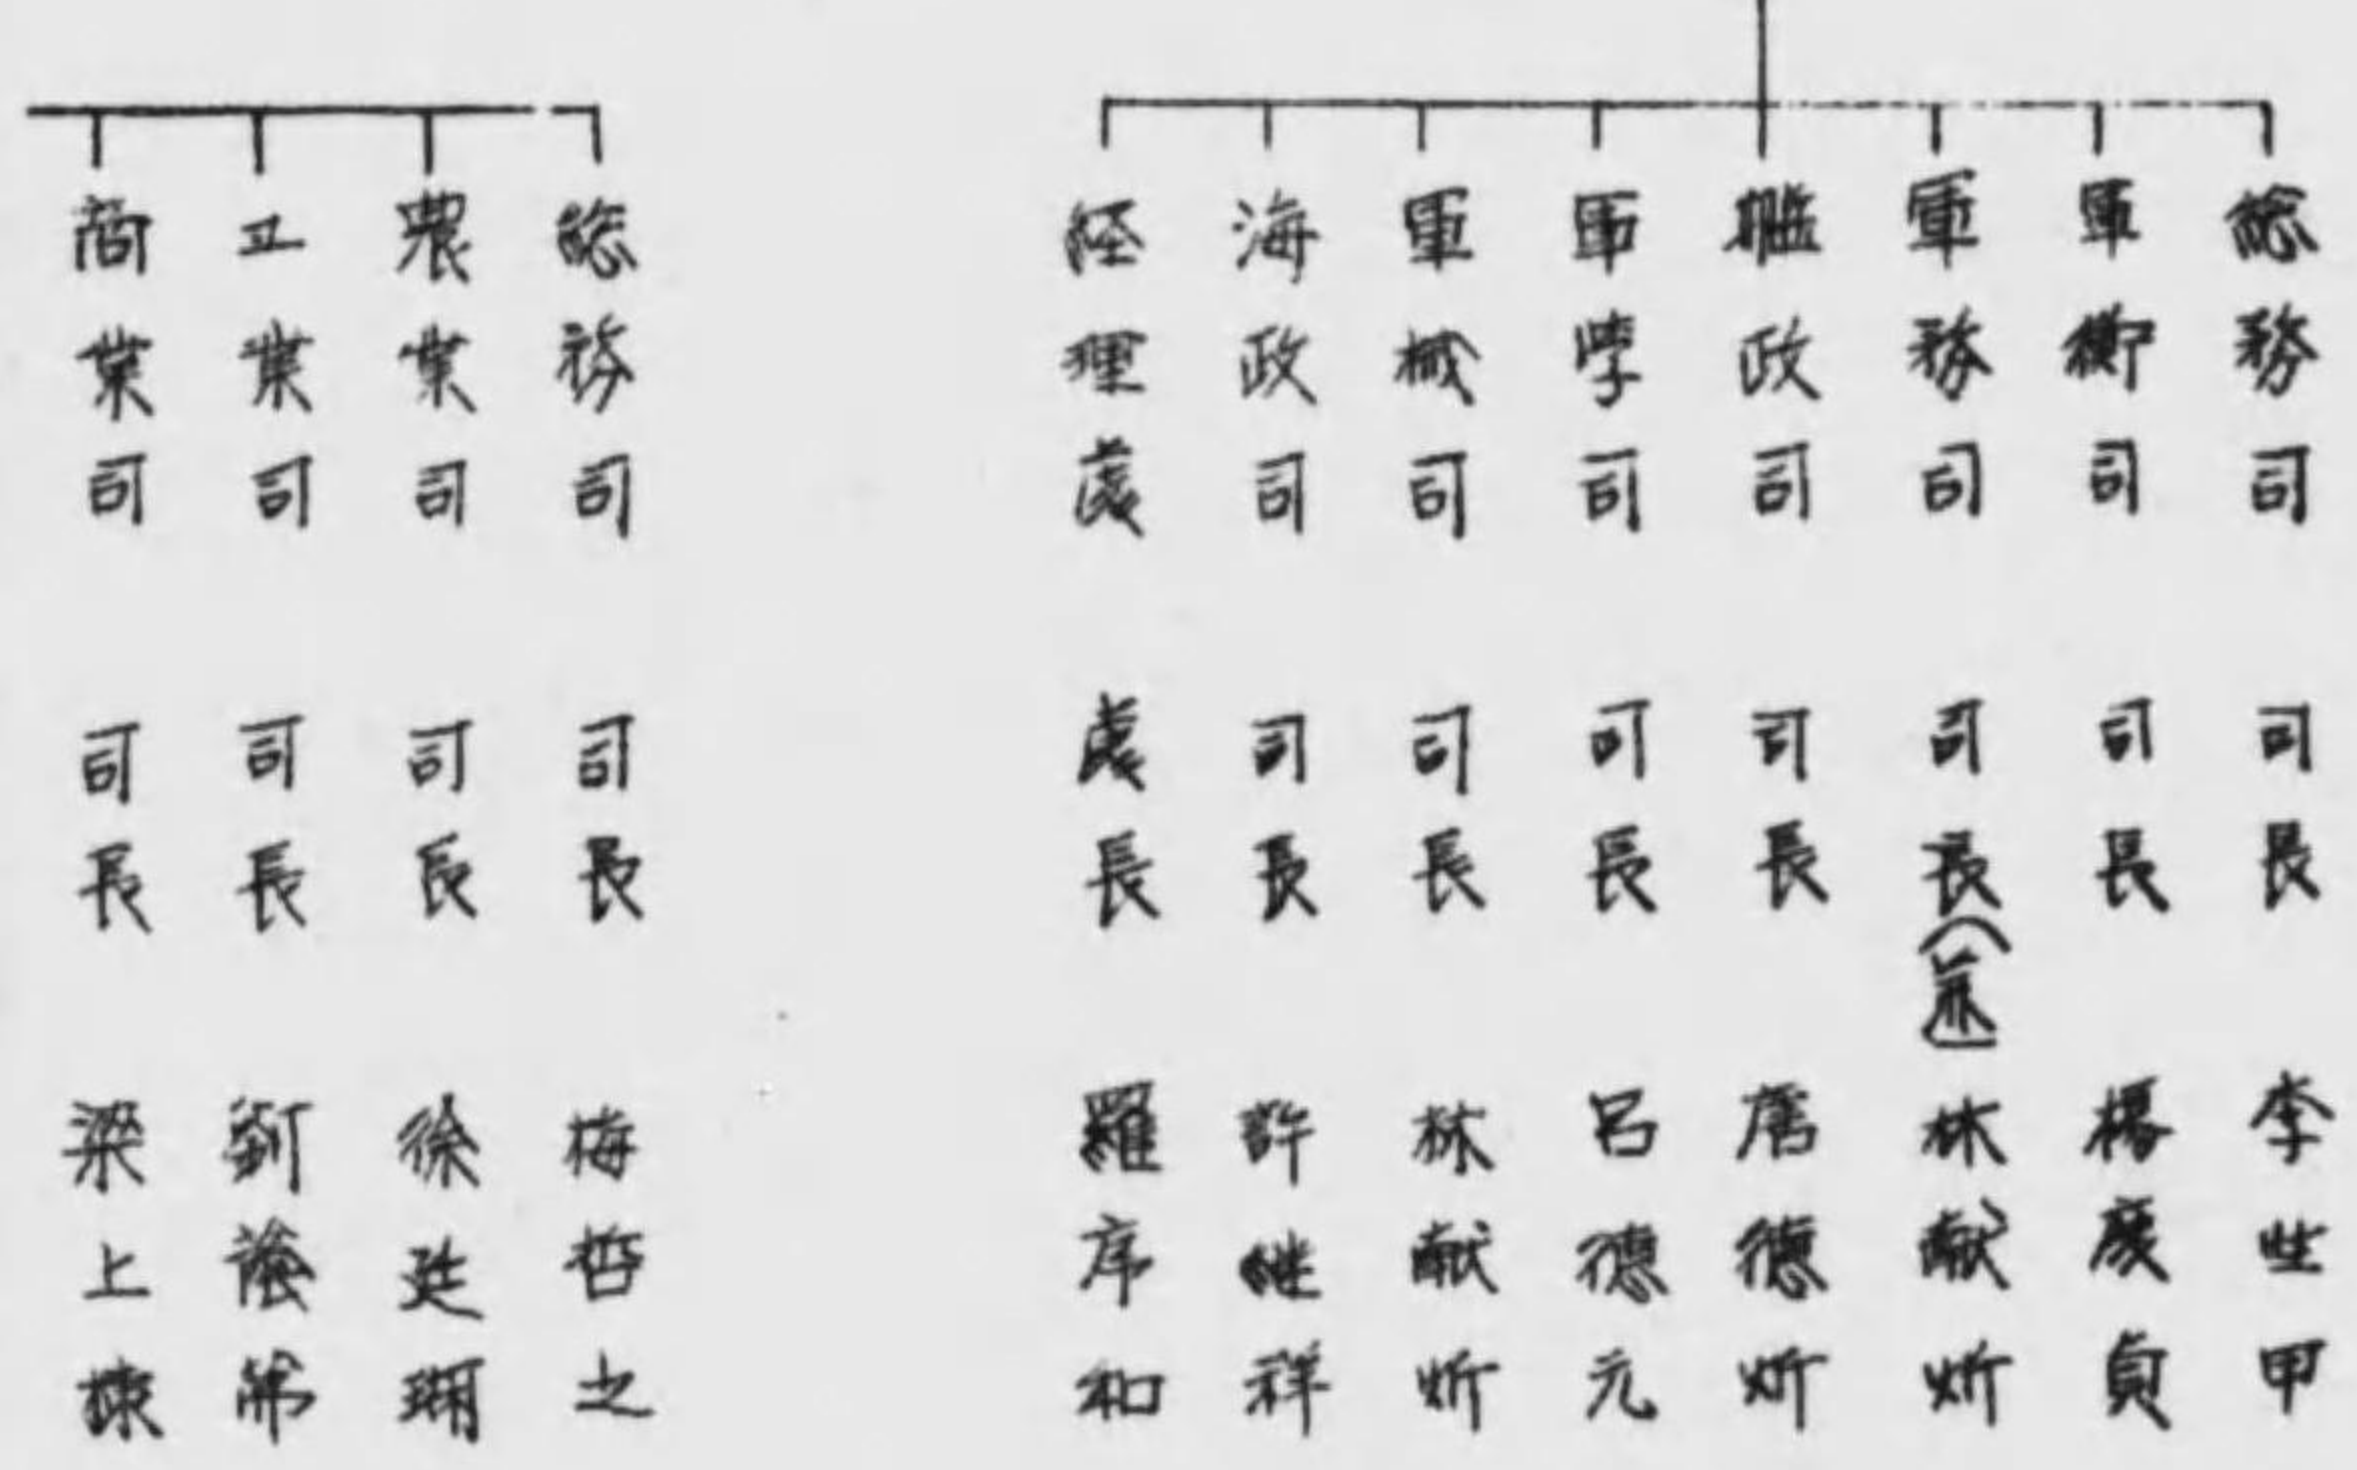 総務司 司長 李世甲
軍衡司 司長 楊慶貞
軍務司 司長(兼) 林献炘
艦政司 司長 唐德炘
軍学司 司長 呂德元
軍械司 司長 林献炘
海政司 司長 許継祥
経理處 處長 羅序和
総務司 司長 梅哲之
農業司 司長 徐廷瑚
工業司 司長 劉蔭茀
商業司 司長 梁上棟